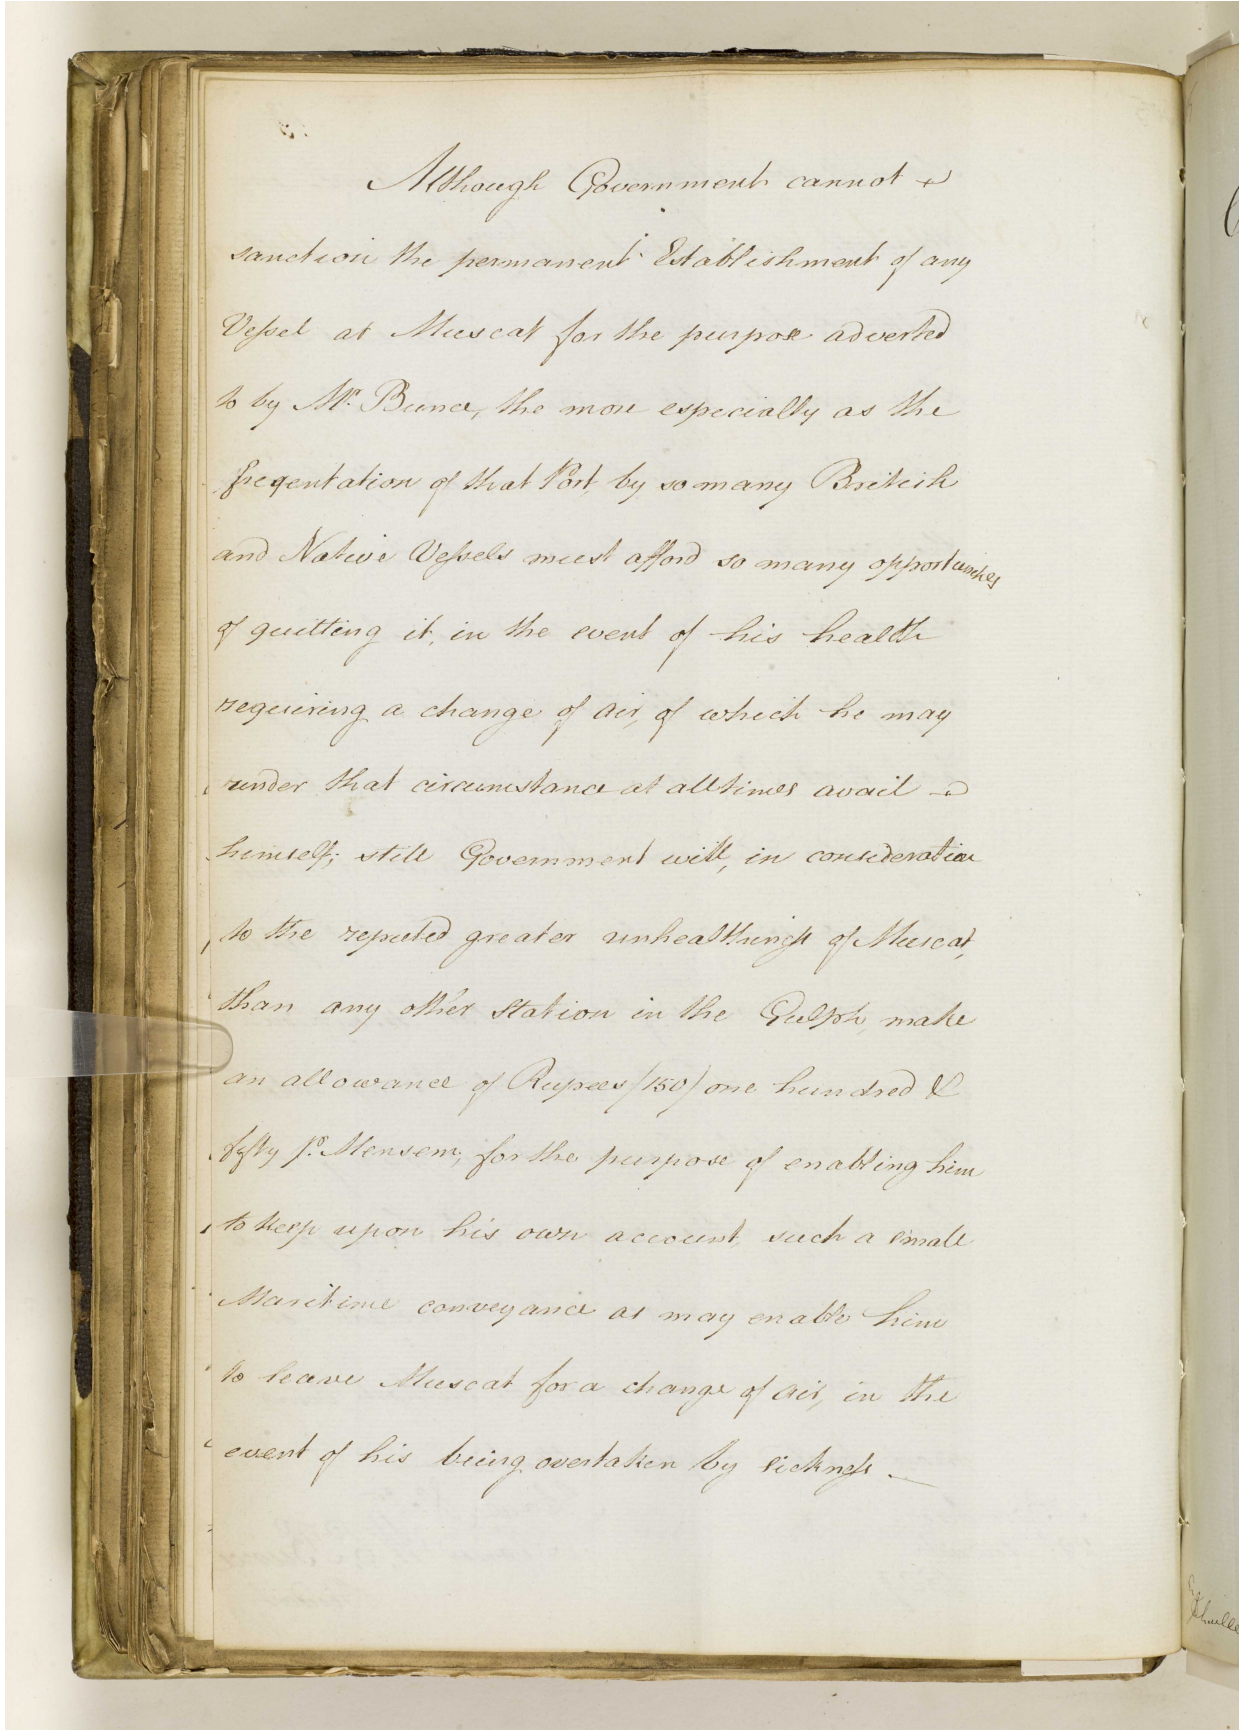 Although Government cannot
sanction the permanent Establishment of any
Vessel at Muscat for the purpose adverted
to by Mr. Bunce, the more especially as the
freqentation of that Port, by so many British
and Native Vessels must afford so many opportunities
of quitting it, in the event of his health
requiring a change of air, of which he may
under that circumstance at all times avail
himself; still Government will, in consideration
to the reputed greater unhealthiness of Muscat,
than any other Station in the Gulph, make
an allowance of Rupees /150/ one hundred &
fifty pr. Mensem, for the purpose of enabling him
to keep upon his own account such a small
Maritime conveyance as may enable him
to leave Muscat for a change of air, in the
event of his being overtaken by sickness.